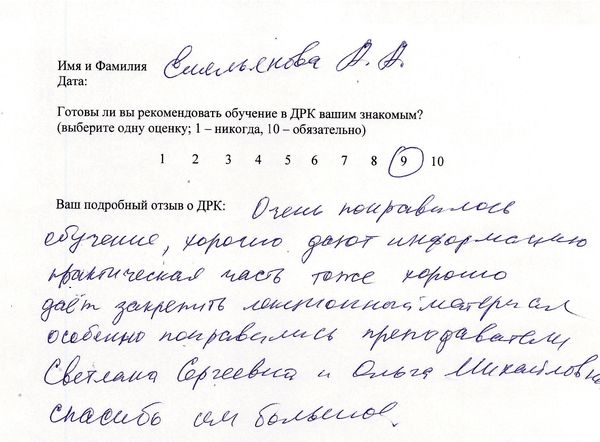 Имя и Фамилия А. А.
Дата:
Готовы ли вы рекомендовать обучение в ДРК вашим знакомым?
(выберите одну оценку; 1 – никогда, 10 – обязательно)
1 2 3 4 5 6 7 8 9 10
Ваш подробный отзыв о ДРК: Очень понравилось
обучение, хорошо дают информацию
практическая часть тоже хорошо
даёт закрепить лекционный материал
особенно понравились преподаватели
Светлана Сергеевна и Ольга Михайловна
спасибо им большое.